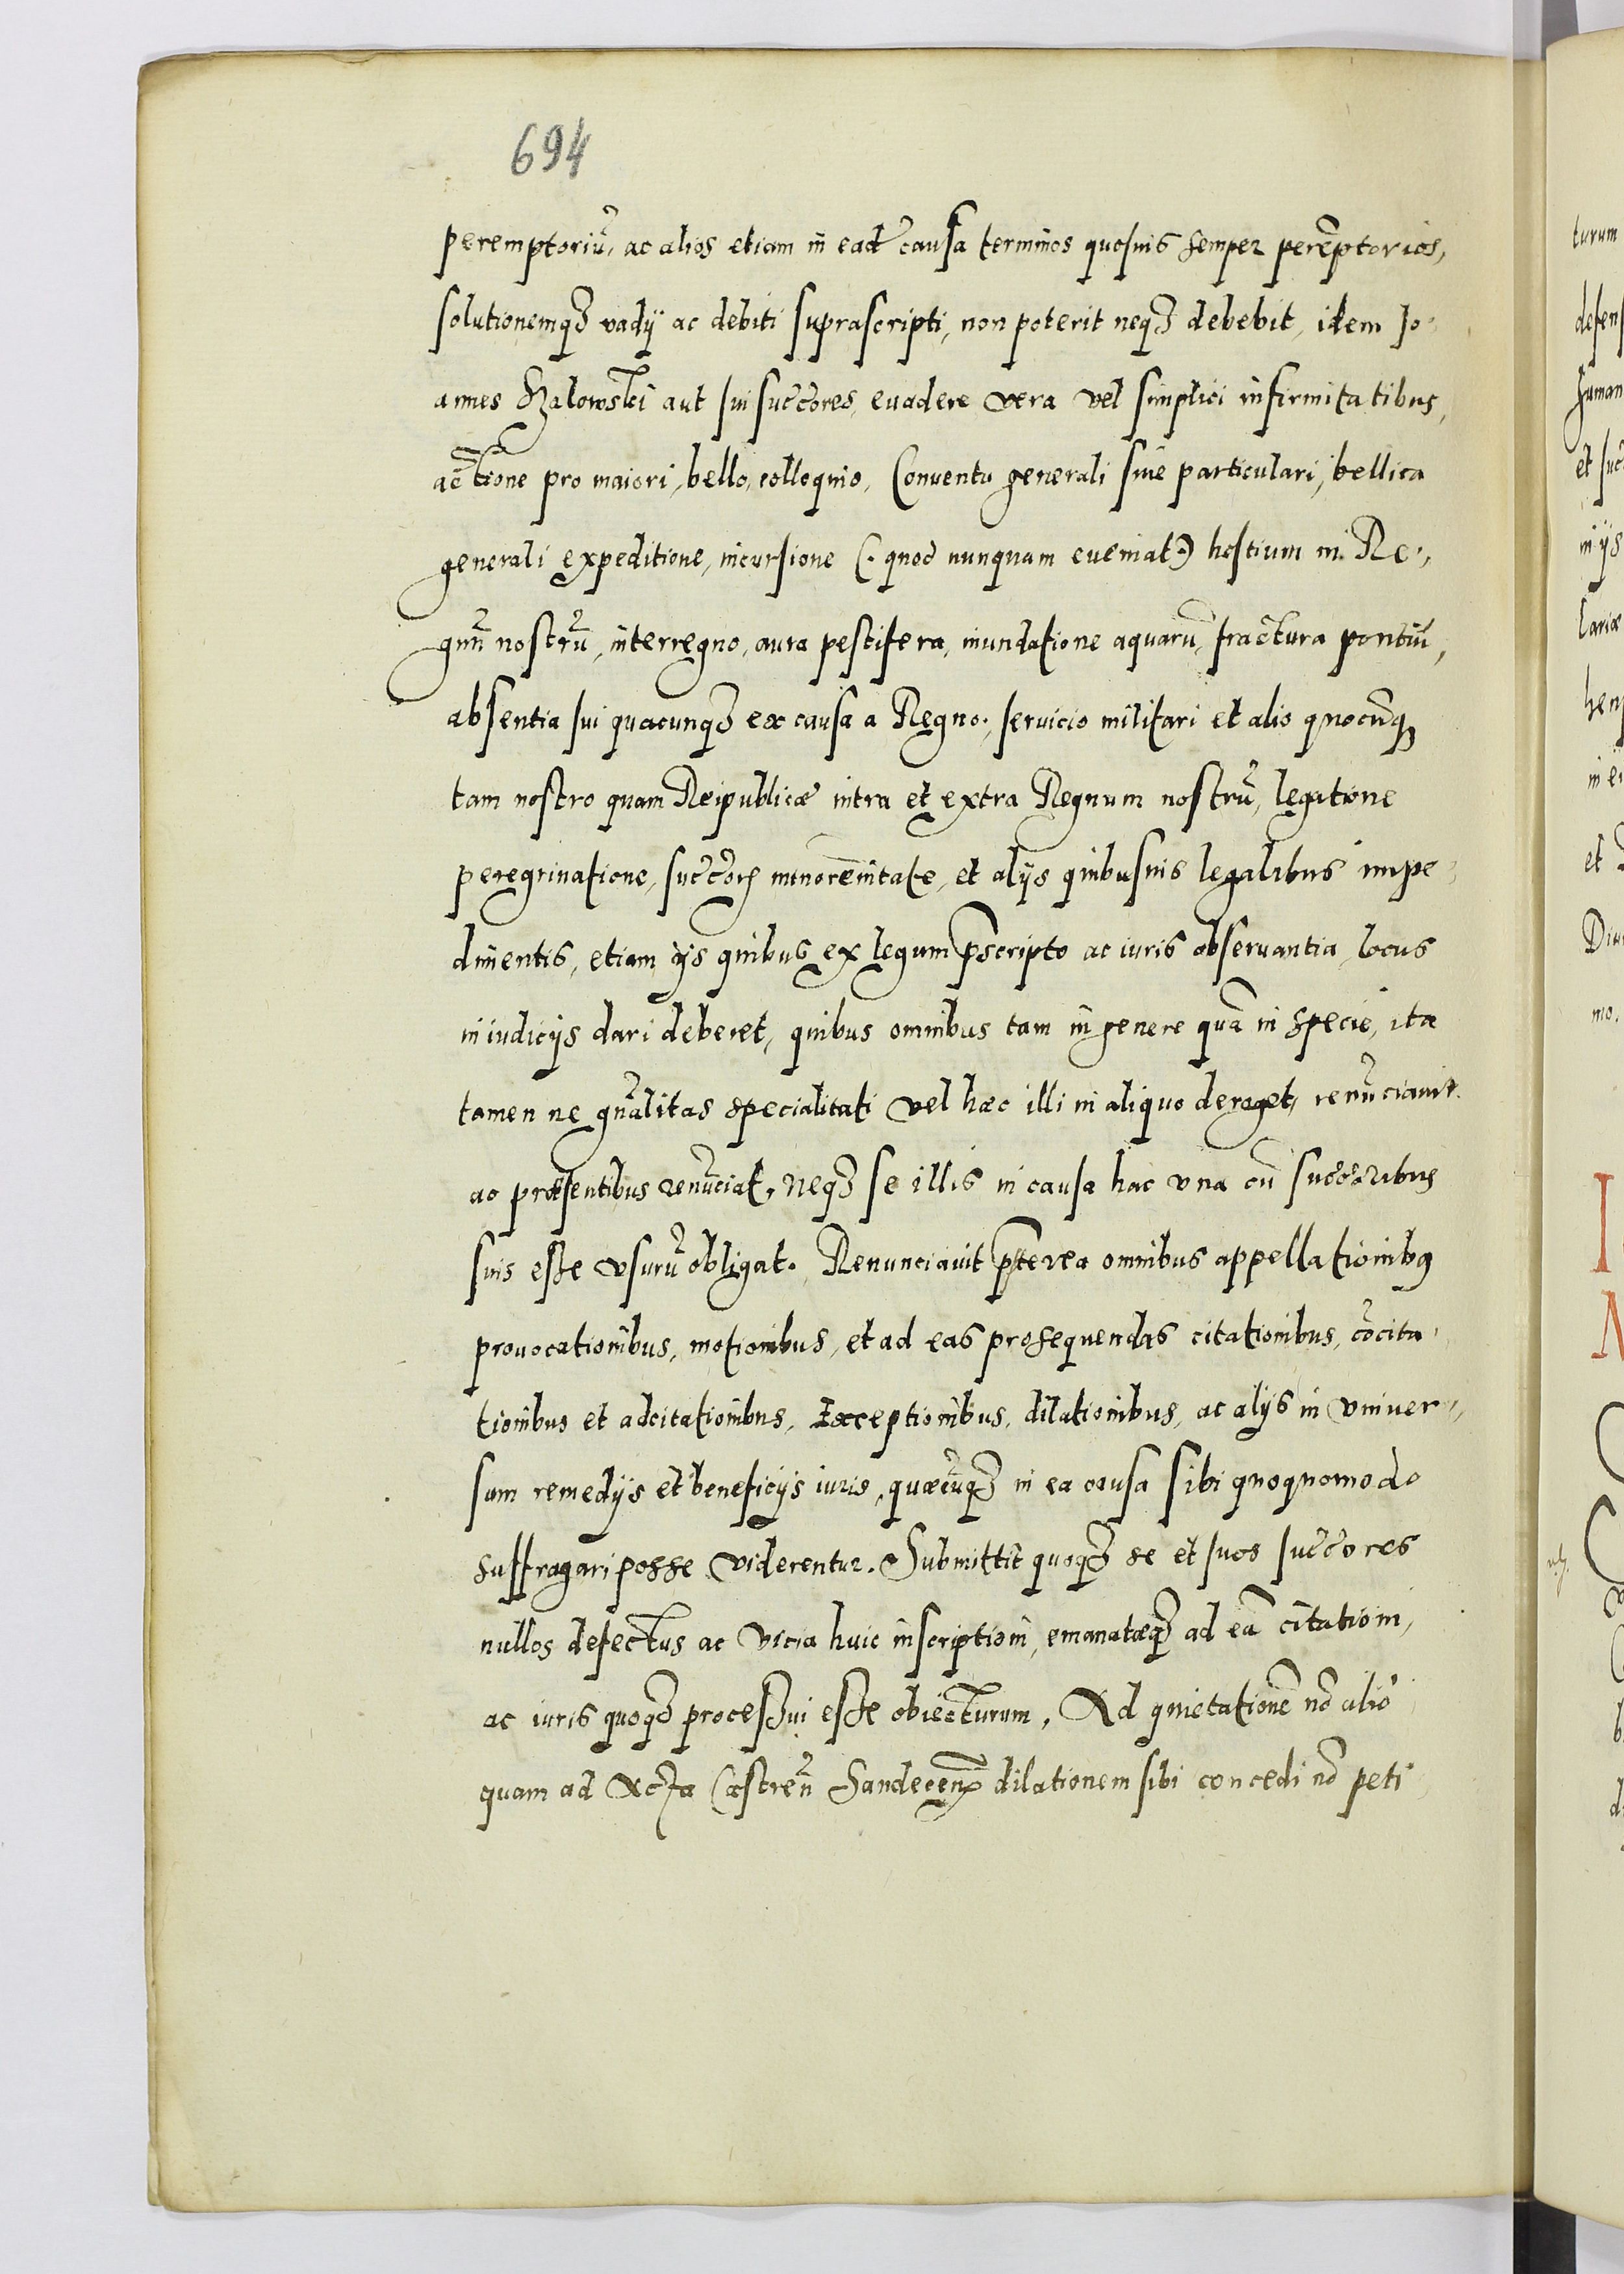 694
peremptoriũ, ac alios etiam in ead̃ causa terminos quosuis semper perẽptorios,
solutionemqȝ vadij ac debiti suprascripti, non poterit neqȝ debebit, idem Jo-
annes Szalowski aut sui succ̃ores, euadere vera vel simplici infirmitatibus,
actione pro maiori, bello, colloquio, Conventu generali siue particulari, bellica
generali expeditione, incursione (. quod nunquam eueniat.) hostium in Re-
gnũ nostrũ, interregno, aura pestifera, inundatione aquarũ, fractura pontiũ,
absentia sui quacunqȝ ex causa a Regno, seruicio militari et alio quocũq
tam nostro quam Reipublicæ intra et extra Regnum nostrũ, legatione
peregrinatione, succ̃orꝝ minorẽnitate, et alijs quibusuis legalibus impe-
dimentis, etiam ijs quibus ex legum p̃scripto ac iuris obseruantia, locus
in iudicijs dari deberet, quibus omnibus tam in genere quã in specie, ita
tamen ne gñalitas specialitati vel hæc illi in aliquo deroget, renũciauit
ac præsentibus renũciat, neqȝ se illis in causa hac vna cũ succ̃oribus
suis esse vsurũ obligat. Renunciauit p̃terea omnibus appellationibꝯ
prouocationibus, motionibus, et ad eas prosequendas citationibus, cõcita-
tionibus et adcitationibus, Exceptionibus, dilationibus, ac alijs in vniuer-
sum remedijs et beneficijs iuris, quæcũqȝ in ea causa sibi quoquomodo
suffragari posse viderentur. Submittit quoqȝ se et suos succ̃ores
nullos defectus ac vicia huic inscriptioni, emanatæqȝ ad eã citationi,
ac iuris quoqȝ processui esse obiecturum. Ad quietationẽ nõ alio
quam ad Acta Castreñ Sandeceñ dilationem sibi concedi nõ peti